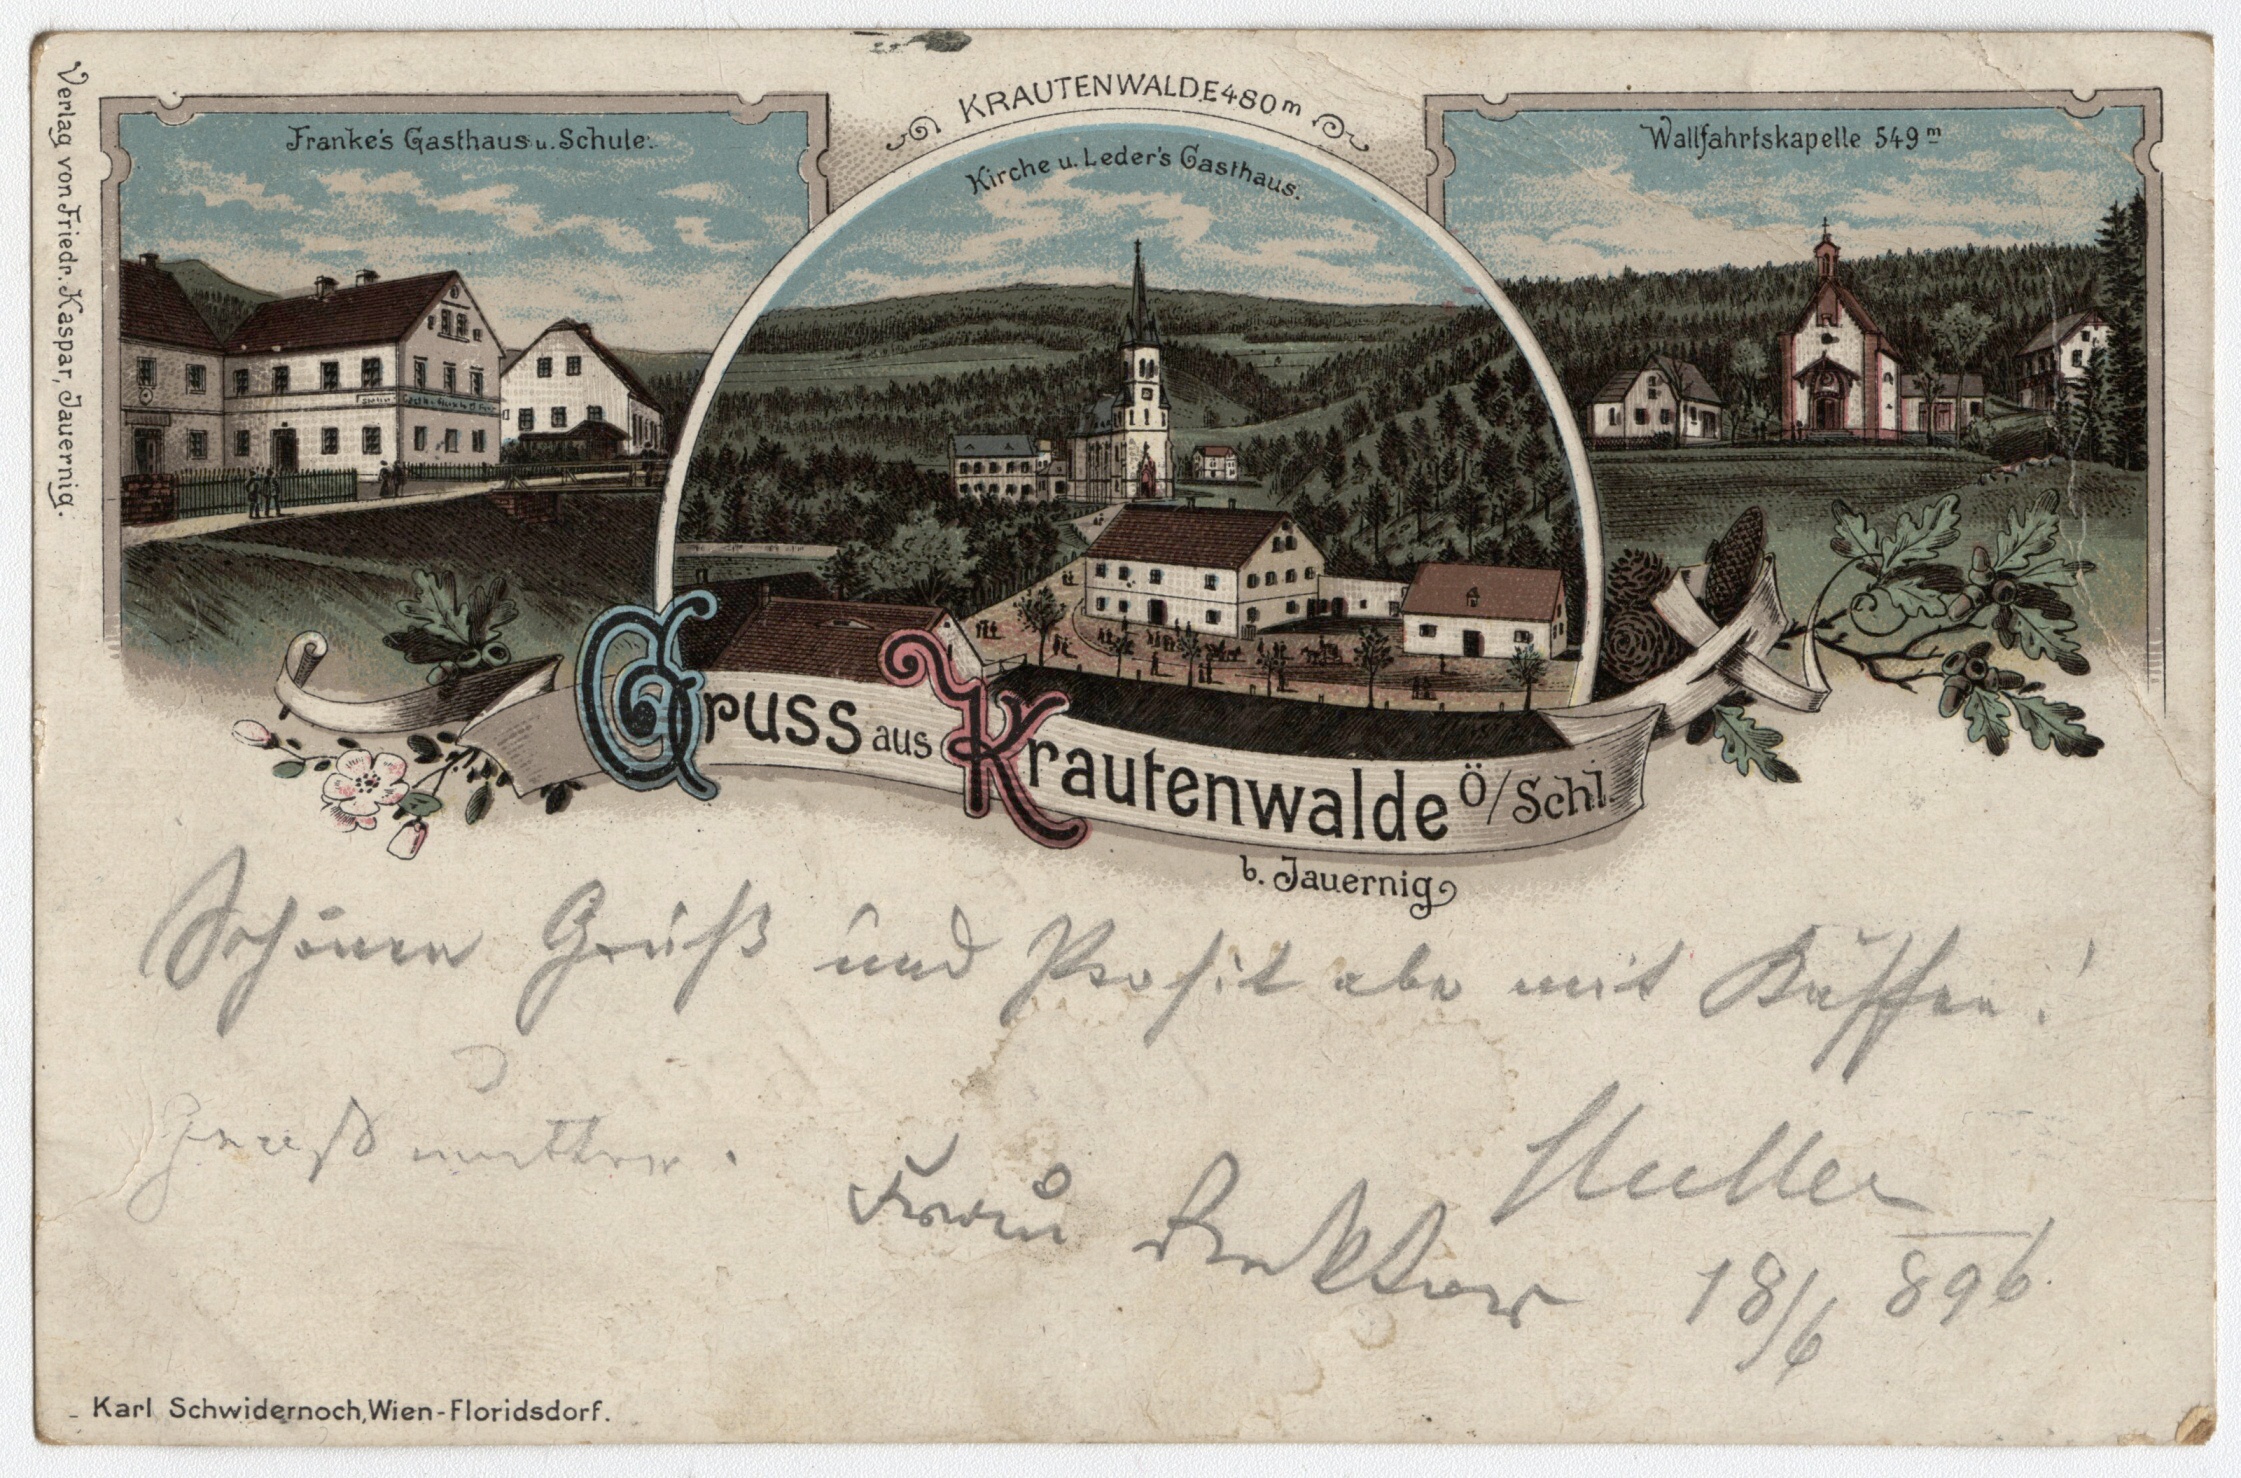 Verlag von Friedr. Kaspar, Jauernig.
KRAUTENWALDE 480 m
Franke's Gasthaus u. Schule.
Kirche u. Leder's Gasthaus.
Wallfahrtskapelle 549 m
Gruss aus Krautenwalde Ö/Schl.
b. Jauernig
Schönen Gruß und Prosit abr mit Kaffee!
Gruß mutter.
Muller
Frau
18/6 896
Karl Schwidernoch, Wien-Floridsdorf.